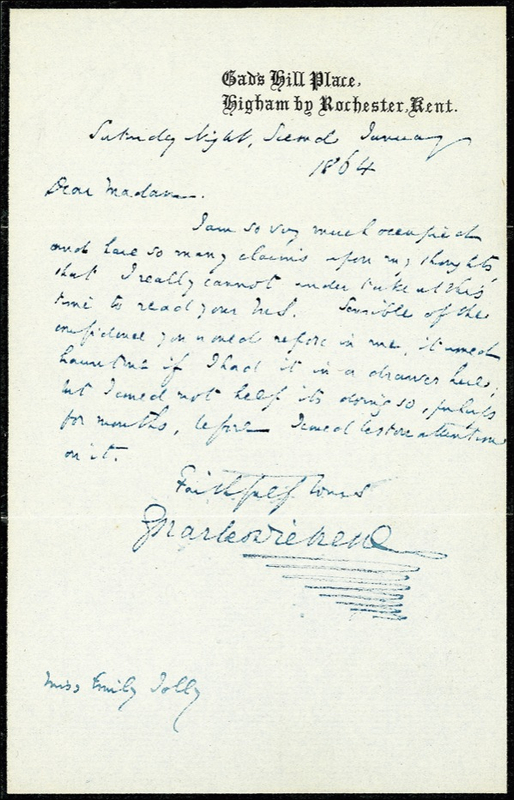 Gad's Hill Place,
Higham by Rochester, Kent.
Saturday Night, Second January
1864
Dear Madam.
I am so very much occupied
and have so many claims upon my thoughts
that I really cannot undertake at this
time to read your MS. Sensible of the
confidence you would repose in me, it would
haunt me if I had it in a drawer here;
but I could not help its doing so, perhaps
for months, before I could bestow attention
on it.
Faithfully Yours
Charles Dickens
Miss Emily Jolly